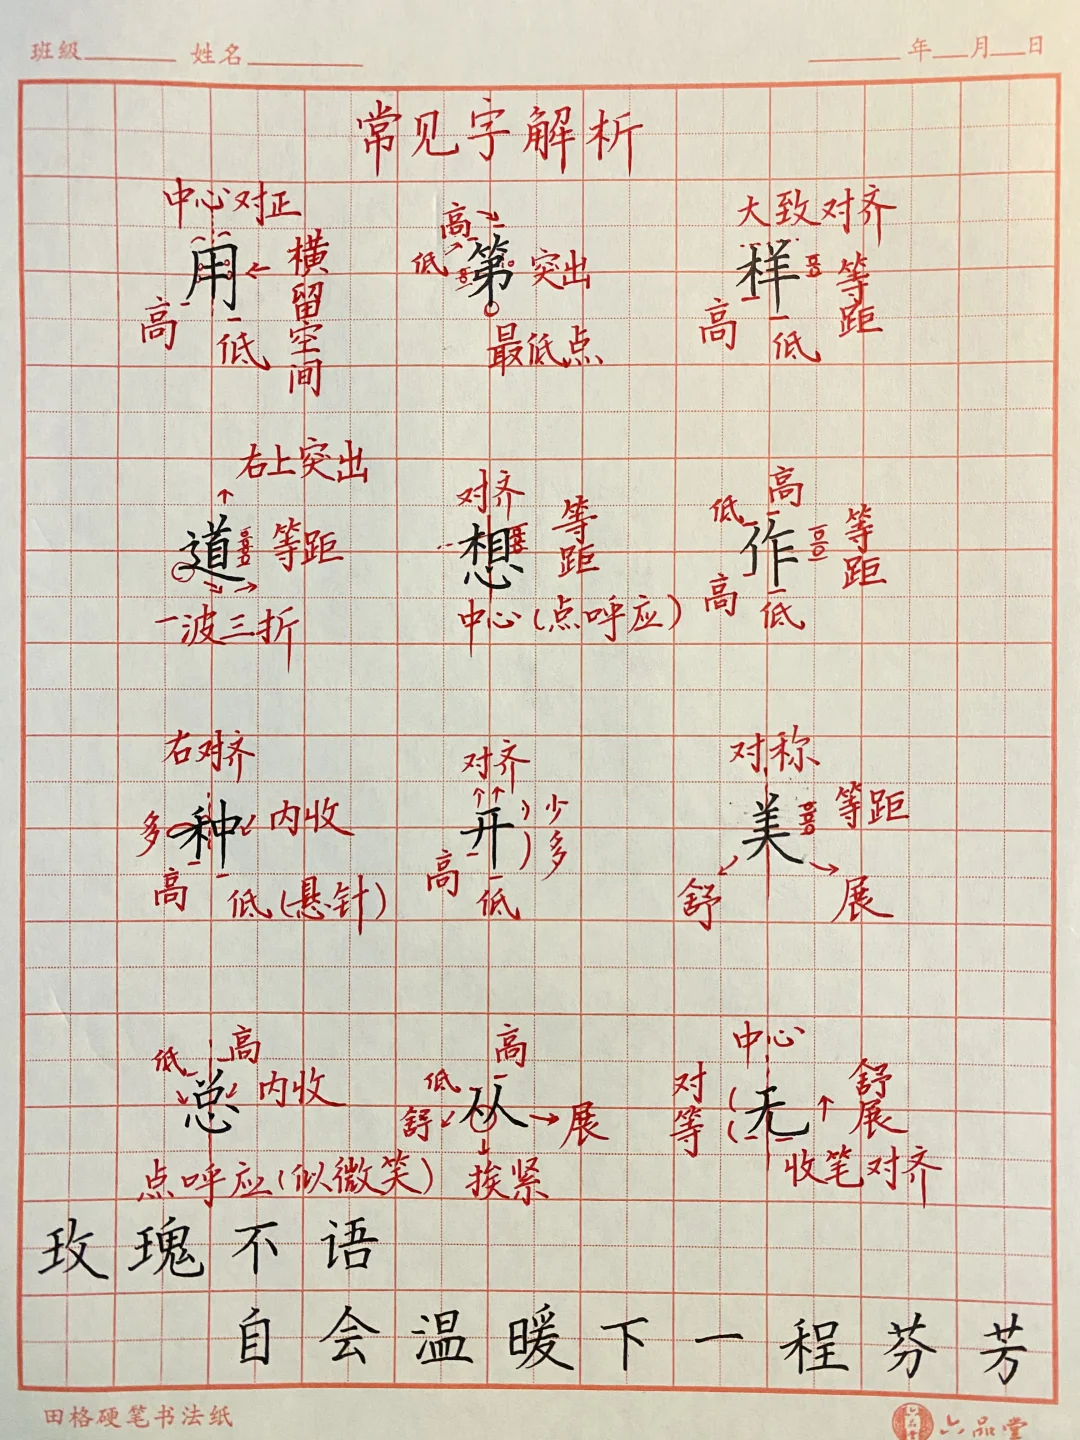 班级 姓名 年 月 日
常见字解析
中心对正
用
横留空间
高
低
高
低
第
突出
最低点
大致对齐
样
等距
高
低
右上突出
道
等距
一波三折
对齐
想
等距
中心(点呼应)
低
高
作
等距
高
低
右对齐
多
种
内收
高
低(悬针)
对齐
开
少
多
高
低
对称
美
等距
舒
展
低
高
总
内收
点呼应(似微笑)
高
低
舒
从
展
挨紧
中心
对等
无
舒展
收笔对齐
玫瑰不语
自会温暖下一程芬芳
田格硬笔书法纸
六品堂